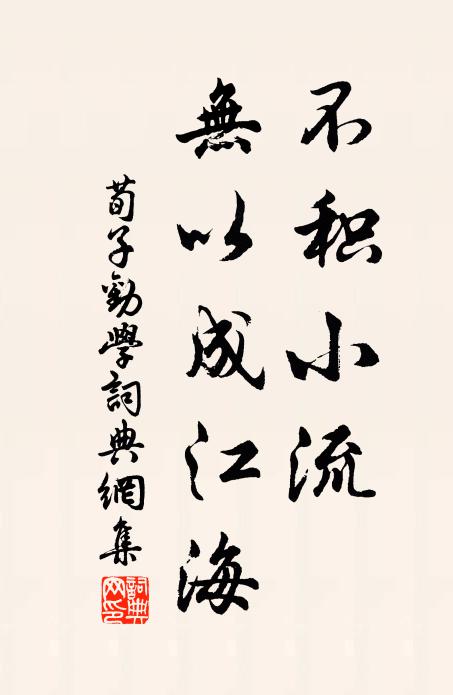 不积小流
無以成江海
荀子勸學詞典網集
詞典網印